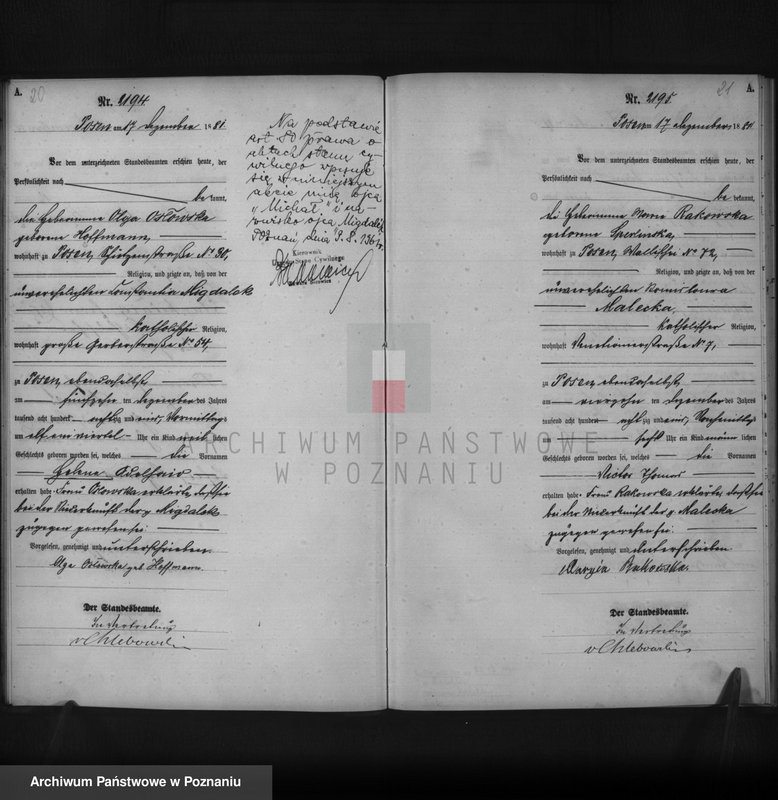 A.
20
Nr. 2194
Posen am 17 Dezember 1881
Vor dem unterzeichneten Standesbeamten erschien heute, der
Persönlichkeit nach
be kannt,
die Hebeamme Olga Osłowska
geborene Hoffmann,
wohnhaft zu Posen, Schützenstraße No 30,
Religion, und zeigte an, daß von der
unverehelichten Constantia Migdalek
katholischer Religion,
wohnhaft große Gerberstraße No 54,
zu Posen, ebendaselbst
am fünfzehn ten Dezember des Jahres
tausend acht hundert achtzig und eins, Vormittags
um elf ein viertel Uhr ein Kind weib lichen
Geschlechts geboren worden sei, welches die Vornamen
Helene
erhalten habe. Frau Osłowska erklärte, daß sie
bei der Niederkunft der p. Migdalek
zugegen gewesen sei.
Vorgelesen, genehmigt und unterschrieben.
Olga Osłowska geb Hoffmann.
Der Standesbeamte.
In Vertretung
v Chlebowski
Na podstawie
art 80 prawa o
aktach stanu cy-
wilnego wpisuje
się w niniejszym
akcie imię ojca
„Michał" i na-
zwisko ojca Migdałek
Poznań, dnia
Kierownik
Urzędu Stanu Cywilnego
21
A.
Nr. 2195
Posen am 17 Dezember 1881
Vor dem unterzeichneten Standesbeamten erschien heute, der
Persönlichkeit nach
be kannt,
die Hebeamme Rakowska
geborene
wohnhaft zu Posen, Wallischei No 72,
Religion, und zeigte an, daß von der
unverehelichten
Malecka,
katholischer Religion,
wohnhaft Venetianerstraße No 7,
zu Posen ebendaselbst
am vierzehn ten Dezember des Jahres
tausend acht hundert achtzig und eins, Nachmittags
um sechs Uhr ein Kind männ lichen
Geschlechts geboren worden sei, welches die Vornamen
Victor Thomas
erhalten habe. Frau Rakowska erklärte, daß sie
bei der Niederkunft der p. Malecka
zugegen gewesen sei.
Vorgelesen, genehmigt und unterschrieben.
Maryia Rakowska.
Der Standesbeamte.
In Vertretung
v Chlebowski
ARCHIWUM PAŃSTWOWE
W POZNANIU
Archiwum Państwowe w Poznaniu